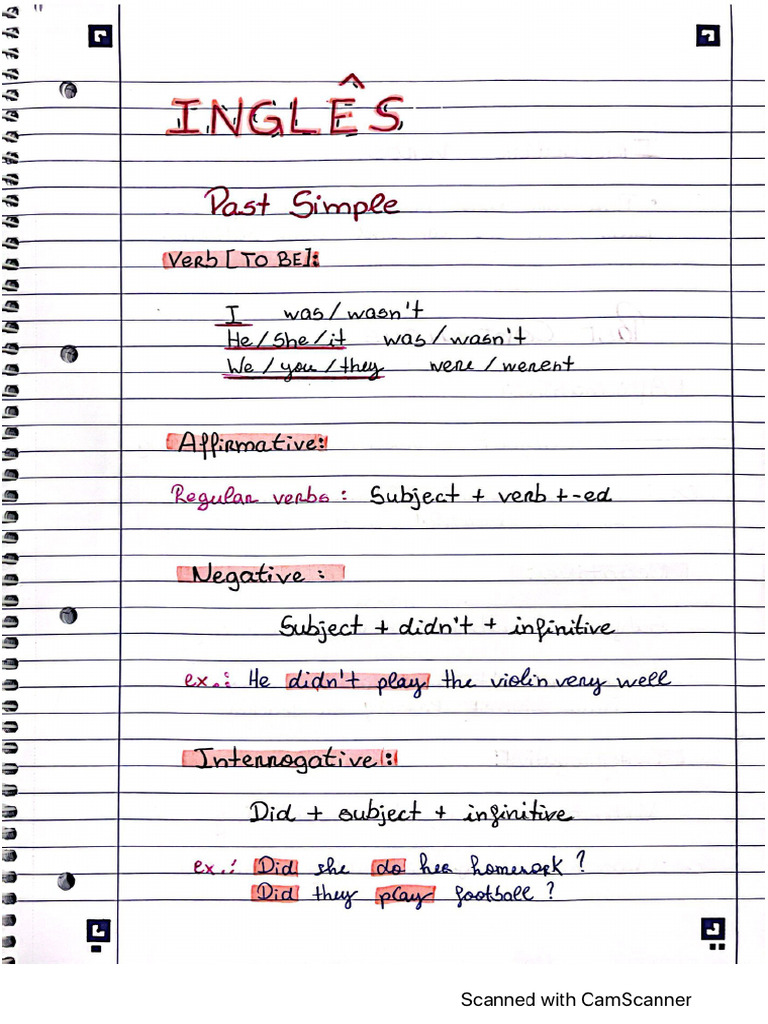 INGLÊS
Past Simple
Verb [TO BE]:
I was / wasn't
He / She / it was / wasn't
We / you / they were / werent
Affirmative:
Regular verbs : Subject + verb + -ed
Negative :
Subject + didn't + infinitive
ex.: He didn't play the violin very well
Interrogative :
Did + subject + infinitive
ex.: Did she do her homework ?
Did they play football ?
Scanned with CamScanner